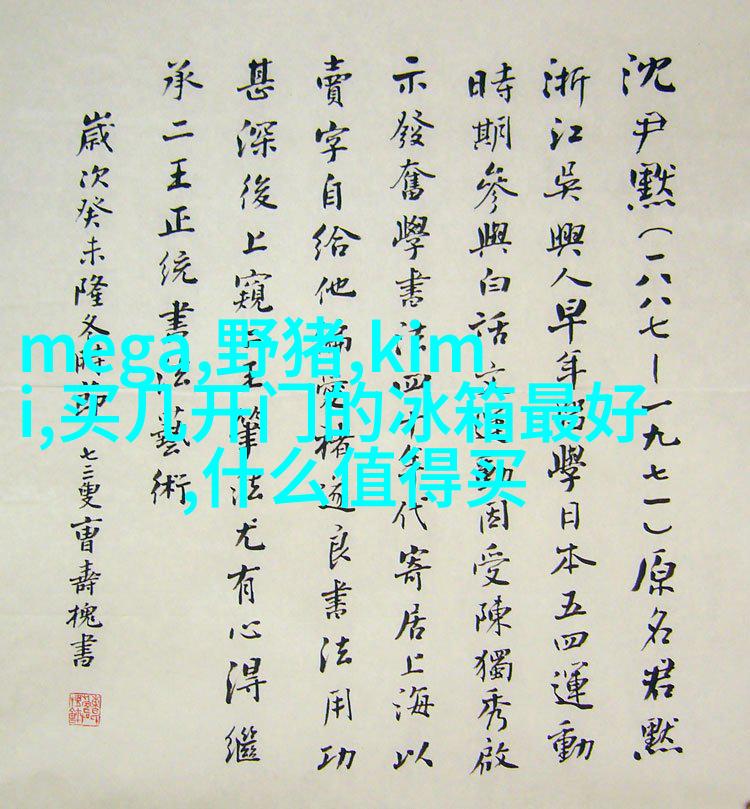 沈尹默（一八八七—一九七一）原名君默
浙江吳興人早年留學日本五四運動
時期參與白話文運動因受陳獨秀啟
示發奮學書法四十年代寄居上海以
賣字自給他偏愛褚遂良書法用功
甚深後上窺二王筆法尤有心得繼
承二王正統書法藝術
歲次癸未隆冬時節七三叟曹壽槐書
mega,野猪,kim
i,买几开门的冰箱最好
,什么值得买